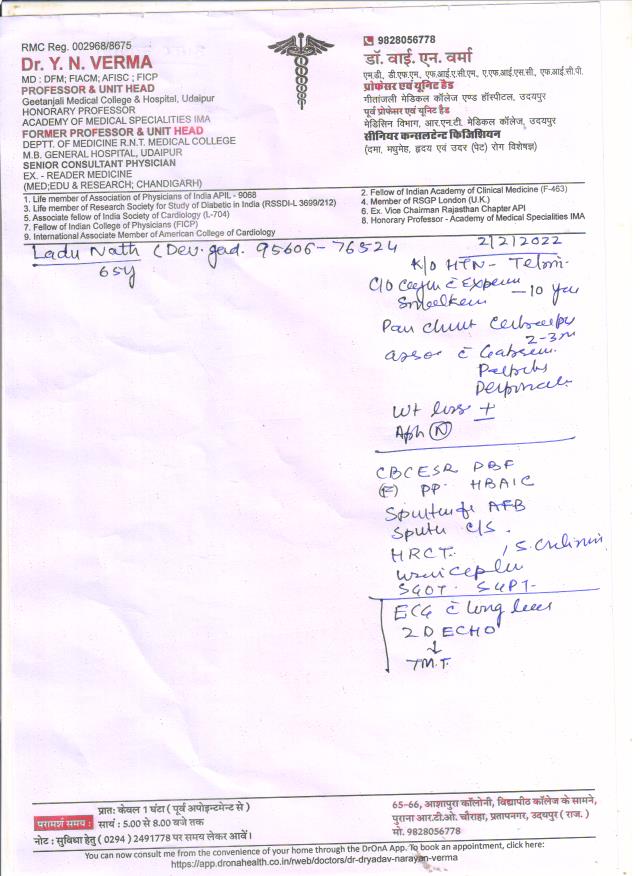 RMC Reg. 002968/8675
Dr. Y. N. VERMA
MD : DFM; FIACM; AFISC ; FICP
PROFESSOR & UNIT HEAD
Geetanjali Medical College & Hospital, Udaipur
HONORARY PROFESSOR
ACADEMY OF MEDICAL SPECIALITIES IMA
FORMER PROFESSOR & UNIT HEAD
DEPTT. OF MEDICINE R.N.T. MEDICAL COLLEGE
M.B. GENERAL HOSPITAL, UDAIPUR
SENIOR CONSULTANT PHYSICIAN
EX. - READER MEDICINE
(MED;EDU & RESEARCH; CHANDIGARH)
9828056778
डॉ. वाई. एन. वर्मा
एम.डी., डी.एफ.एम., एफ.आई.ए.सी.एम., ए.एफ.आई.एस.सी., एफ.आई.सी.पी.
प्रोफेसर एवं यूनिट हैड
गीतांजली मेडिकल कॉलेज एण्ड हॉस्पीटल, उदयपुर
पूर्व प्रोफेसर एवं यूनिट हैड
मेडिसिन विभाग, आर.एन.टी. मेडिकल कॉलेज, उदयपुर
सीनियर कन्सलटेन्ट फिजिशियन
(दमा, मधुमेह, हृदय एवं उदर (पेट) रोग विशेषज्ञ)
1. Life member of Association of Physicians of India APIL - 9068
3. Life member of Research Society for Study of Diabetic in India (RSSDI-L 3699/212)
5. Associate fellow of India Society of Cardiology (L-704)
7. Fellow of Indian College of Physicians (FICP)
9. International Associate Member of American College of Cardiology
2. Fellow of Indian Academy of Clinical Medicine (F-463)
4. Member of RSGP London (U.K.)
6. Ex. Vice Chairman Rajasthan Chapter API
8. Honorary Professor - Academy of Medical Specialities IMA
Ladu Nath (Dev. gad. 95606-76524
2/2/2022
65y
K/o HTN - Telmi
C/o
- 10
2-3
Wt loss +
(N)
CBC ESR PBF
(F) PP HBA1C
Sputum for AFB
Sputu C/S.
HRCT.
SGOT. SGPT-
ECG c long lead
2D ECHO
↓
T.M.T.
परामर्श समय :
प्रातः केवल 1 घंटा ( पूर्व अपोइन्टमेन्ट से )
सायं : 5.00 से 8.00 बजे तक
नोट : सुविधा हेतु ( 0294 ) 2491778 पर समय लेकर आवें।
65-66, आशापुरा कॉलोनी, विद्यापीठ कॉलेज के सामने,
पुराना आर.टी.ओ. चौराहा, प्रतापनगर, उदयपुर ( राज. )
मो. 9828056778
You can now consult me from the convenience of your home through the DrOnA App. To book an appointment, click here:
https://app.dronahealth.co.in/rweb/doctors/dr-dryadav-narayan-verma